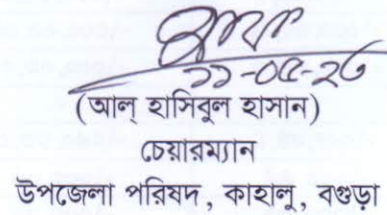 ১১-০৫-২৩
(আল্ হাসিবুল হাসান)
চেয়ারম্যান
উপজেলা পরিষদ, কাহালু, বগুড়া